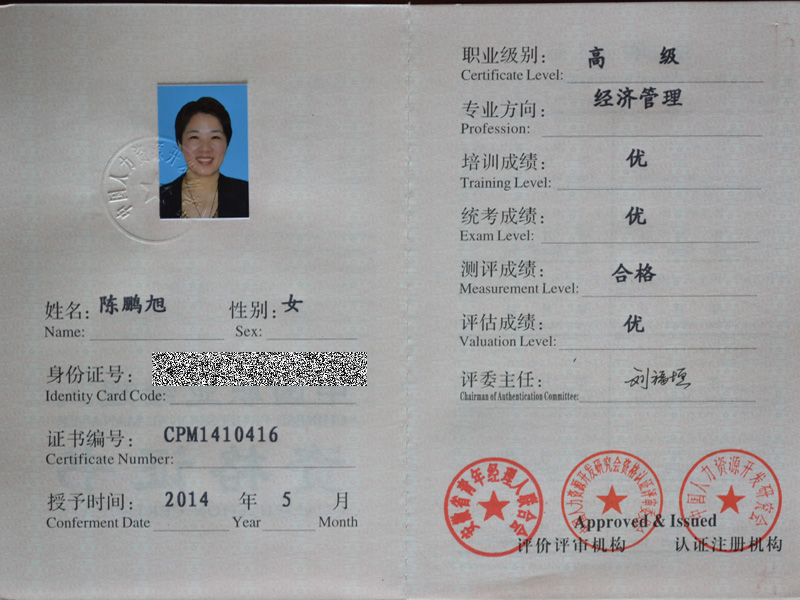 中国人力资源开
姓名：陈鹏旭 性别：女
Name: Sex:
身份证号：
Identity Card Code:
证书编号： CPM1410416
Certificate Number:
授予时间： 2014 年 5 月
Conferment Date Year Month
职业级别： 高 级
Certificate Level:
专业方向： 经济管理
Profession:
培训成绩： 优
Training Level:
统考成绩： 优
Exam Level:
测评成绩： 合格
Measurement Level:
评估成绩： 优
Valuation Level:
评委主任： 刘福垣
Chairman of Authentication Committee:
安徽省青年经理人联合会
中国人力资源开发研究会资格认证评审委员会
中国人力资源开发研究会
Approved & Issued
评价评审机构 认证注册机构